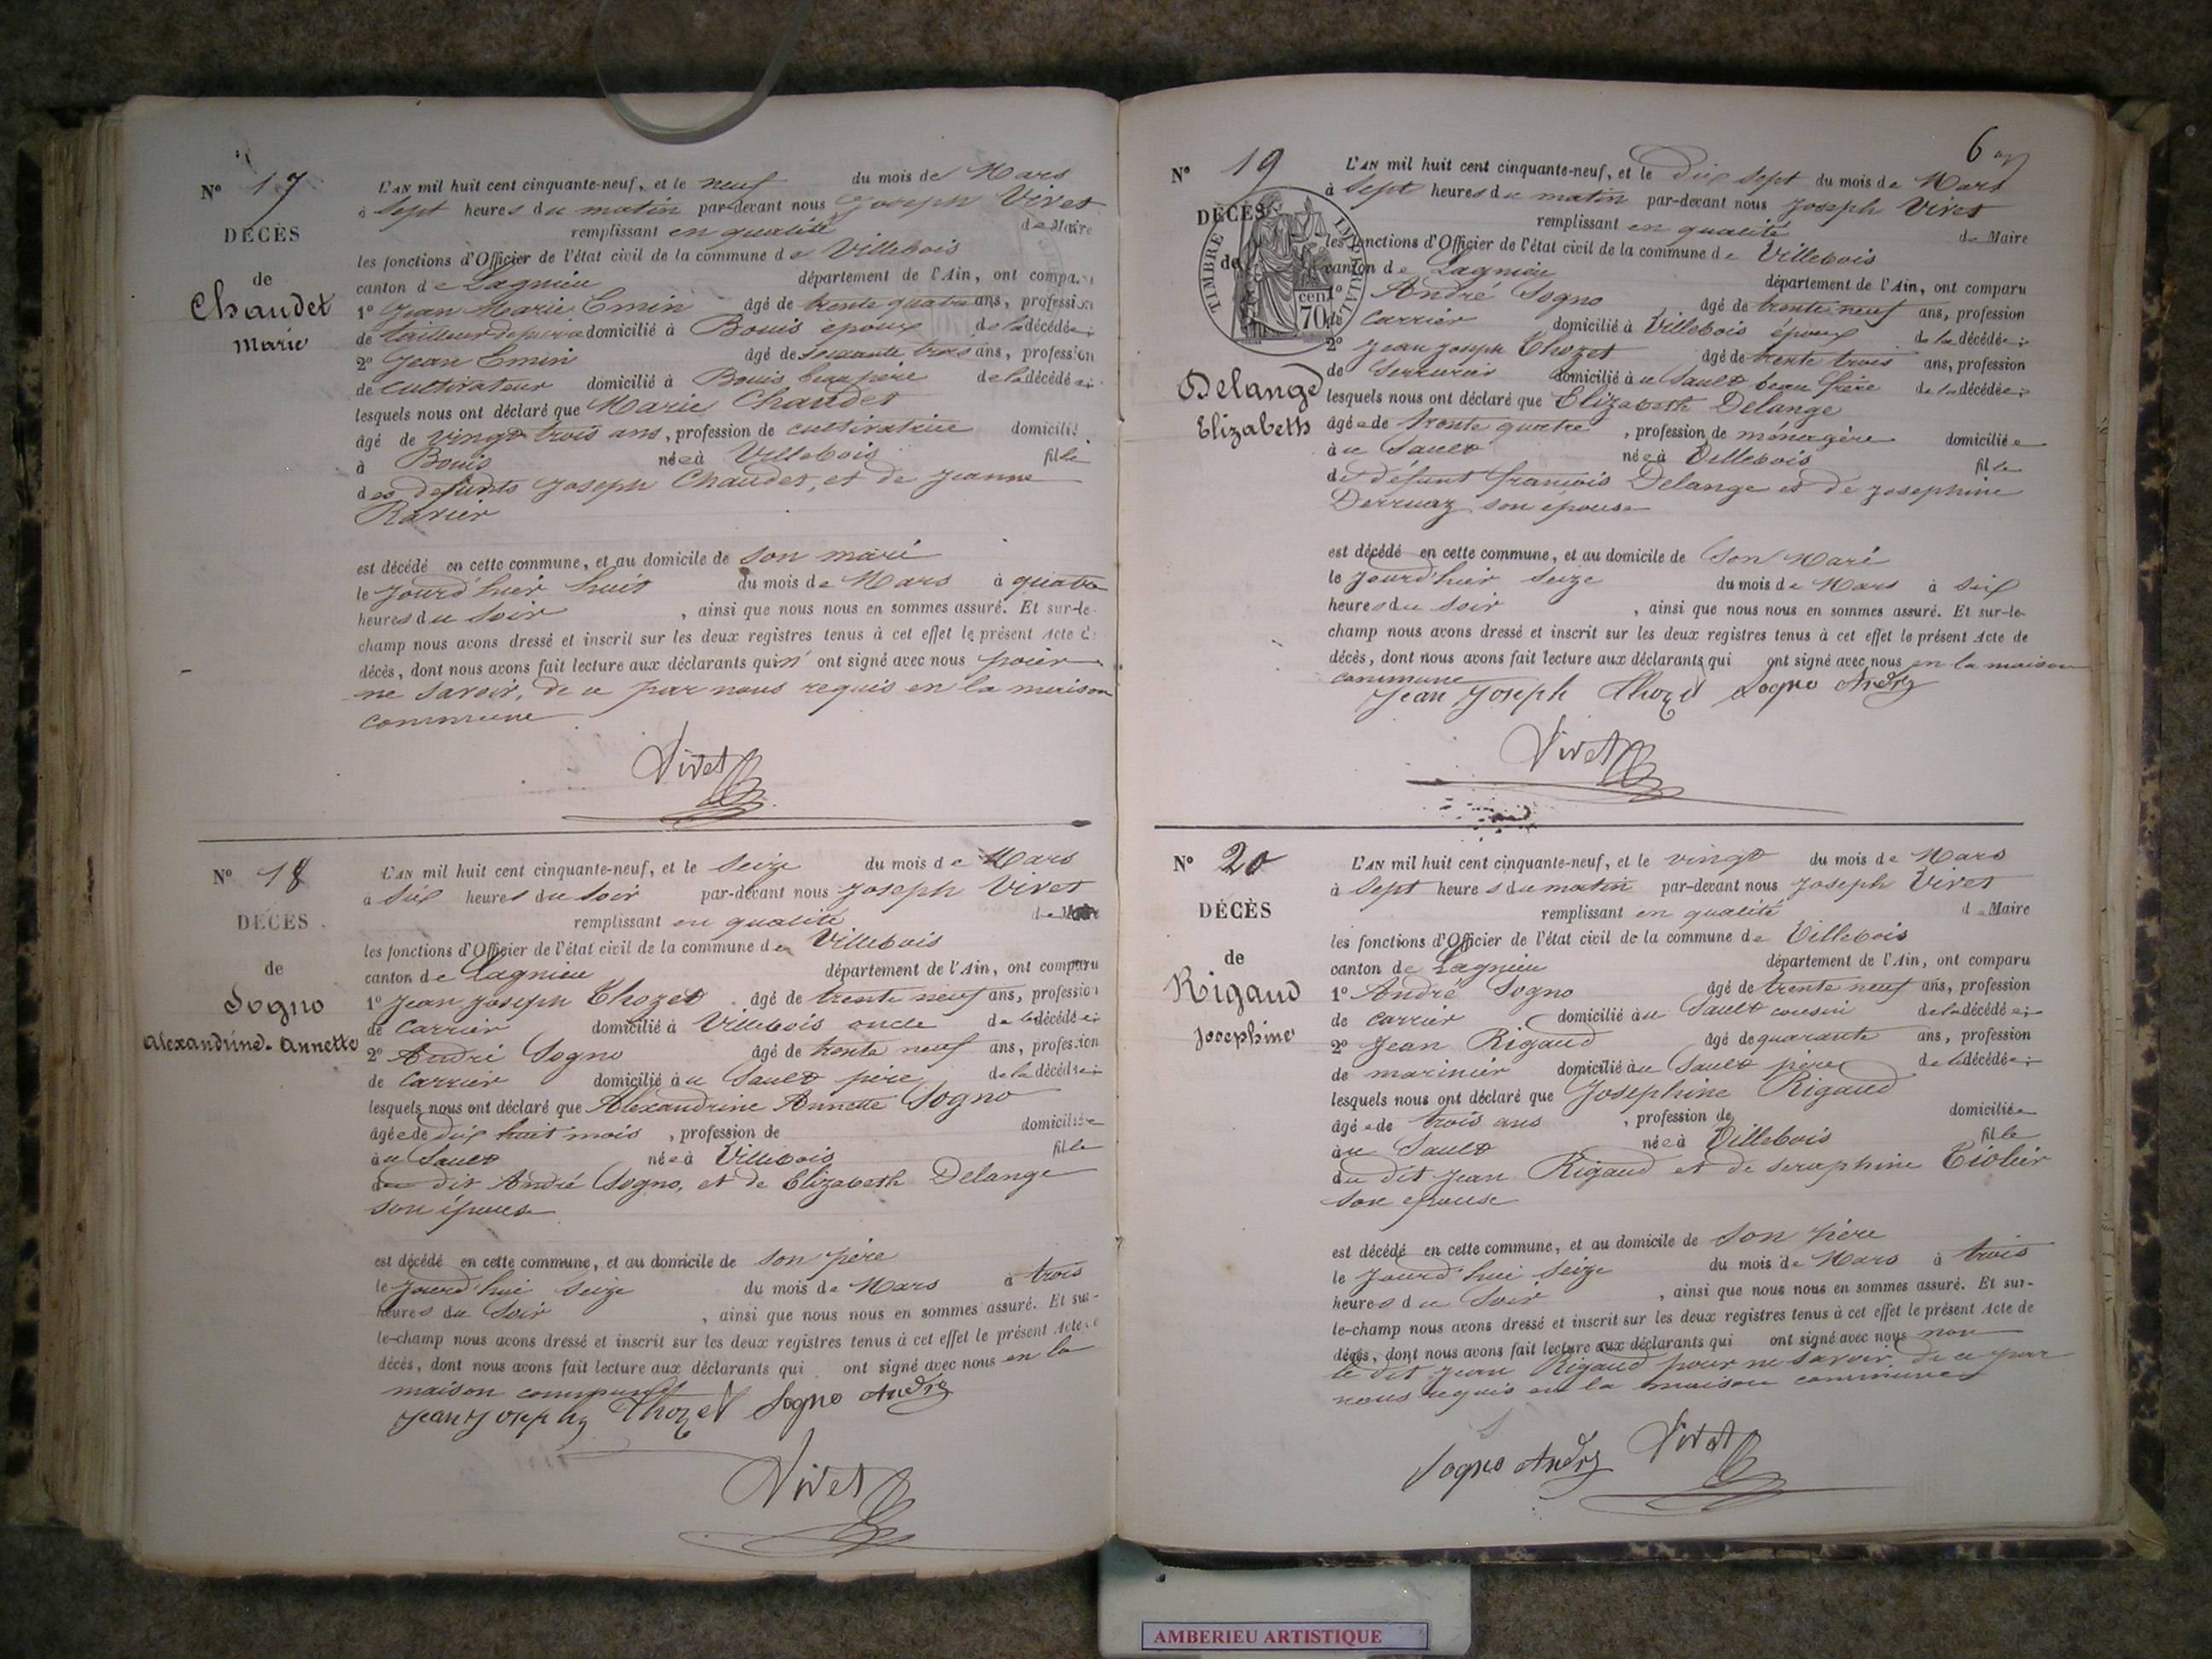 N° 17
DÉCÈS
de
Chaudet
Marie
L'AN mil huit cent cinquante-neuf, et le neuf du mois de Mars
à sept heures du matin par-devant nous Joseph Vivet
remplissant en qualité de Maire
les fonctions d'Officier de l'état civil de la commune de Villebois
canton de Lagnieu département de l'Ain, ont compa
1° Jean Marie Emin âgé de trente quatre ans, profession
de tailleur de pierre domicilié à Bouis époux de la décédée;
2° Jean Emin âgé de soixante trois ans, profession
de cultivateur domicilié à Bouis beau père de la décédée;
lesquels nous ont déclaré que Marie Chaudet
âgé de vingt trois ans, profession de cultivatrice domicilié
à Bouis née à Villebois fille
des defunts Joseph Chaudet, et de Jeanne
Ravier
est décédé en cette commune, et au domicile de son mari
le jourd'hier huit du mois de Mars à quatre
heures du soir, ainsi que nous nous en sommes assuré. Et sur-le-
champ nous avons dressé et inscrit sur les deux registres tenus à cet effet le présent Acte de
décès, dont nous avons fait lecture aux déclarants qui n'ont signé avec nous pour
ne savoir, de ce par nous requis en la maison
commune
Vivet
N° 18
DÉCÈS
de
Sogno
Alexandrine-Annette
L'AN mil huit cent cinquante-neuf, et le seize du mois de Mars
à six heures du soir par-devant nous Joseph Vivet
remplissant en qualité de Maire
les fonctions d'Officier de l'état civil de la commune de Villebois
canton de Lagnieu département de l'Ain, ont comparu
1° Jean Joseph Thozet âgé de trente neuf ans, profession
de carrier domicilié à Villebois oncle de la décédée;
2° André Sogno âgé de trente neuf ans, profession
de carrier domicilié au Sault père de la décédée;
lesquels nous ont déclaré que Alexandrine Annette Sogno
âgée de dix huit mois, profession de domiciliée
au Sault née à Villebois fille
du dit André Sogno, et de Elizabeth Delange
son épouse
est décédé en cette commune, et au domicile de son père
le jourd'hui seize du mois de Mars à trois
heures du soir, ainsi que nous nous en sommes assuré. Et sur-
le-champ nous avons dressé et inscrit sur les deux registres tenus à cet effet le présent Acte de
décès, dont nous avons fait lecture aux déclarants qui ont signé avec nous en la
maison commune
Jean Joseph Thozet Sogno André
Vivet
6
N° 19
DÉCÈS
de
Delange
Elizabeth
TIMBRE IMPÉRIAL
70 cen
L'AN mil huit cent cinquante-neuf, et le dix sept du mois de Mars
à sept heures du matin par-devant nous Joseph Vivet
remplissant en qualité de Maire
les fonctions d'Officier de l'état civil de la commune de Villebois
canton de Lagnieu département de l'Ain, ont comparu
1° André Sogno âgé de trente neuf ans, profession
de carrier domicilié à Villebois époux de la décédée;
2° Jean Joseph Thozet âgé de trente trois ans, profession
de serrurier domicilié au Sault beau frère de la décédée;
lesquels nous ont déclaré que Elizabeth Delange
âgée de trente quatre, profession de ménagère domiciliée
au Sault née à Villebois fille
de défunt françois Delange et de Josephine
Derruaz son épouse
est décédé en cette commune, et au domicile de son Mari
le jourd'hier seize du mois de Mars à six
heures du soir, ainsi que nous nous en sommes assuré. Et sur-le-
champ nous avons dressé et inscrit sur les deux registres tenus à cet effet le présent Acte de
décès, dont nous avons fait lecture aux déclarants qui ont signé avec nous en la maison
commune
Jean Joseph Thozet Sogno André
Vivet
N° 20
DÉCÈS
de
Rigaud
Josephine
L'AN mil huit cent cinquante-neuf, et le vingt du mois de Mars
à sept heures du matin par-devant nous Joseph Vivet
remplissant en qualité de Maire
les fonctions d'Officier de l'état civil de la commune de Villebois
canton de Lagnieu département de l'Ain, ont comparu
1° André Sogno âgé de trente neuf ans, profession
de carrier domicilié au Sault cousin de la décédée;
2° Jean Rigaud âgé de quarante ans, profession
de marinier domicilié au Sault père de la décédée;
lesquels nous ont déclaré que Josephine Rigaud
âgée de trois ans, profession de domiciliée
au Sault née à Villebois fille
du dit Jean Rigaud et de seraphine Tiolier
son epouse
est décédé en cette commune, et au domicile de son père
le jourd'hui seize du mois de Mars à trois
heures du soir, ainsi que nous nous en sommes assuré. Et sur-
le-champ nous avons dressé et inscrit sur les deux registres tenus à cet effet le présent Acte de
décès, dont nous avons fait lecture aux déclarants qui ont signé avec nous non
le dit Jean Rigaud pour ne savoir de ce par
nous requis en la maison commune
Sogno André Vivet
AMBERIEU ARTISTIQUE